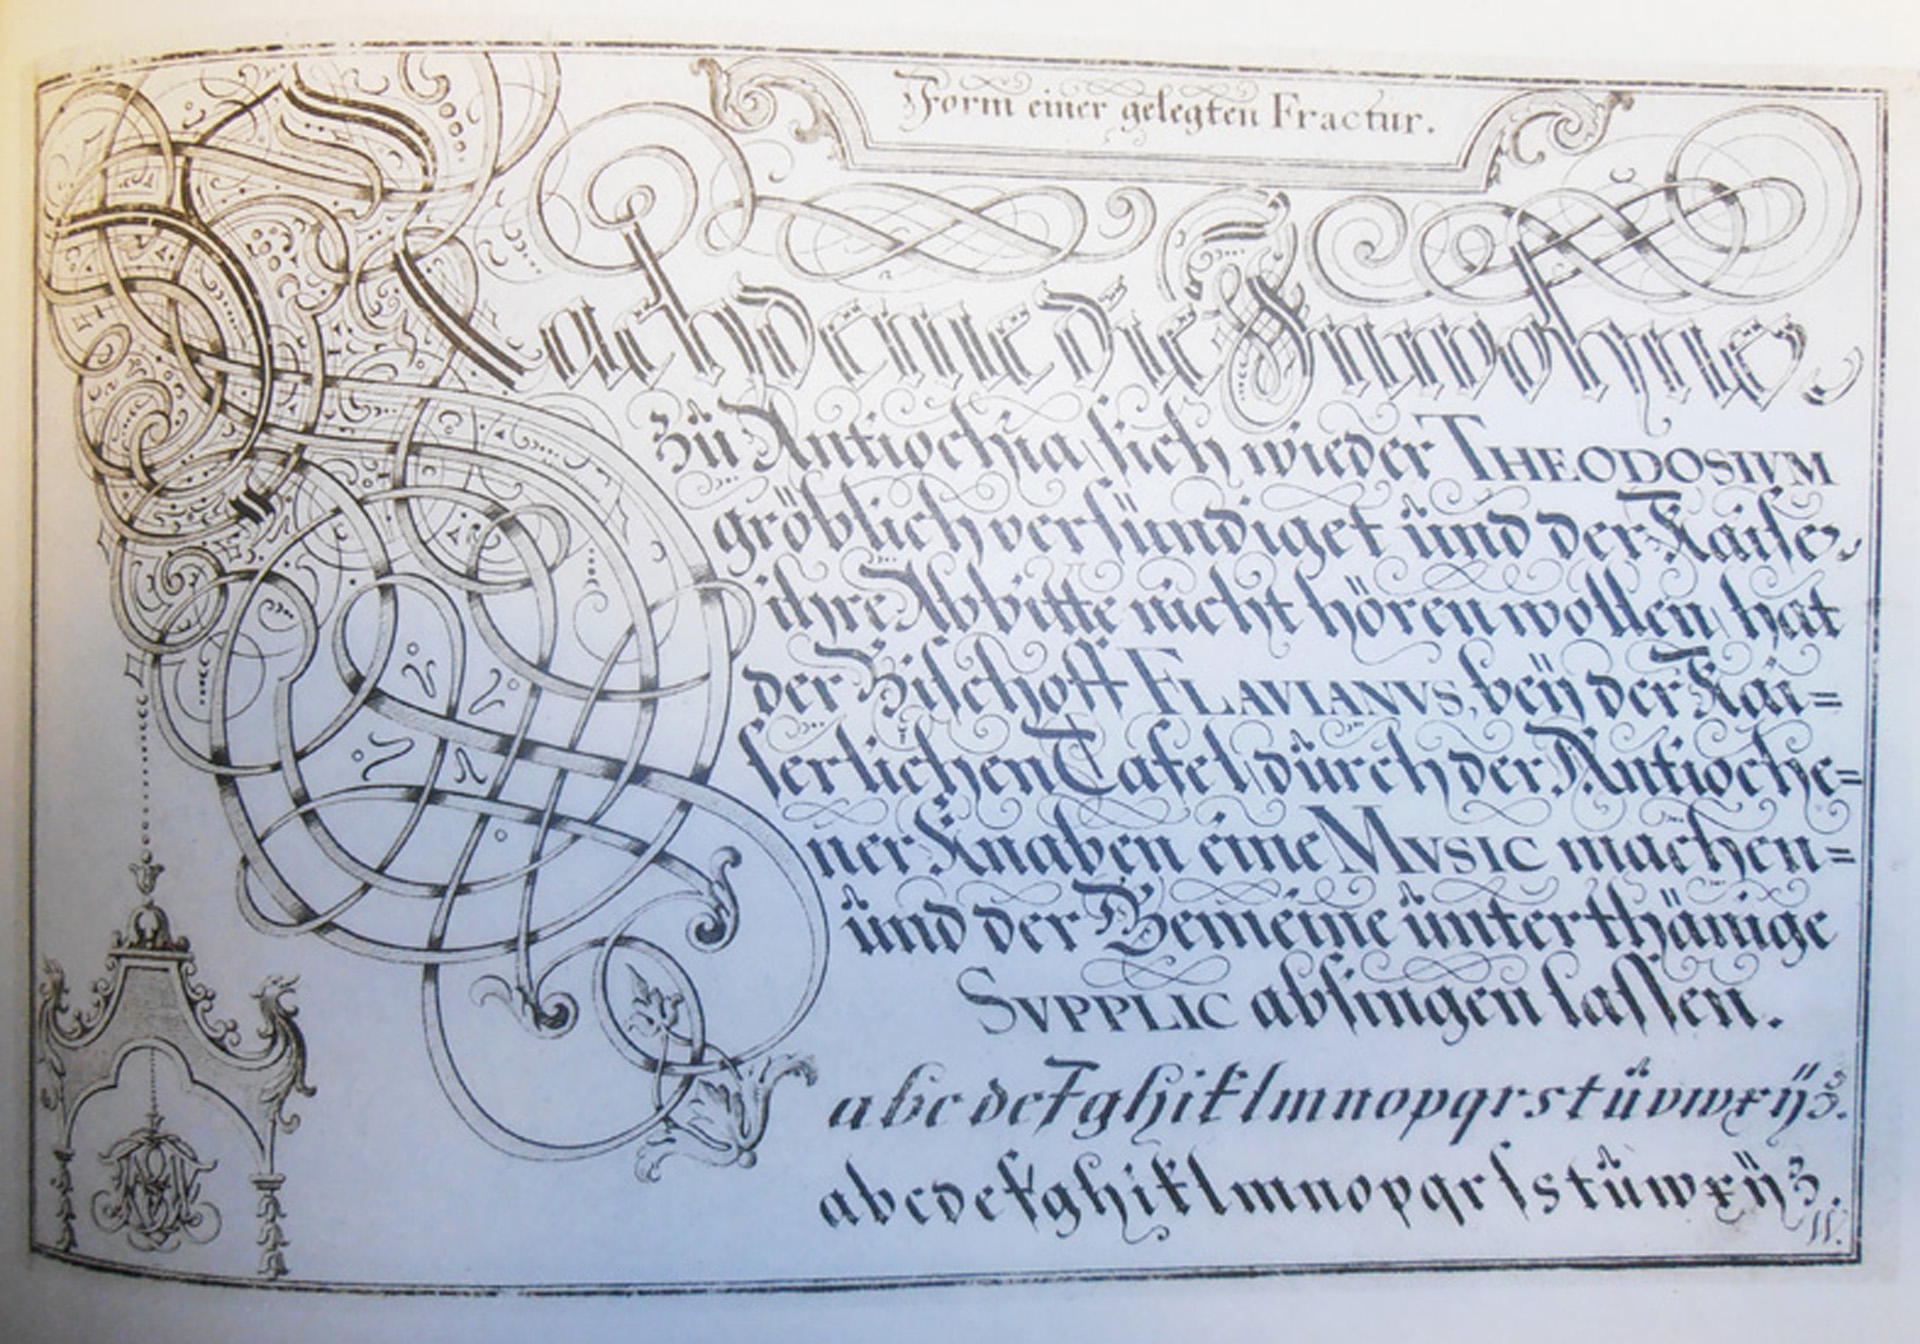 Form einer gelegten Fractur.
Nachdeme die Innwohner
zü Antiochia, sich wieder THEODOSIVM
gröblich versündiget ünd der Kaiser
ihre Abbitte nicht hören wollen, hat
der Bischoff FLAVIANVS, beÿ der Kai=
serlichen Tafel, dürch der Antioche=
ner Knaben eine MVSIC machen=
ünd der Gemeine ünterthänige
SVPPLIC absingen lassen.
a b c d e f g h i k l m n o p q r s t ü v w x ÿ z.
a b c d e f g h i k l m n o p q r ſ s t ü w x ÿ z.
11.